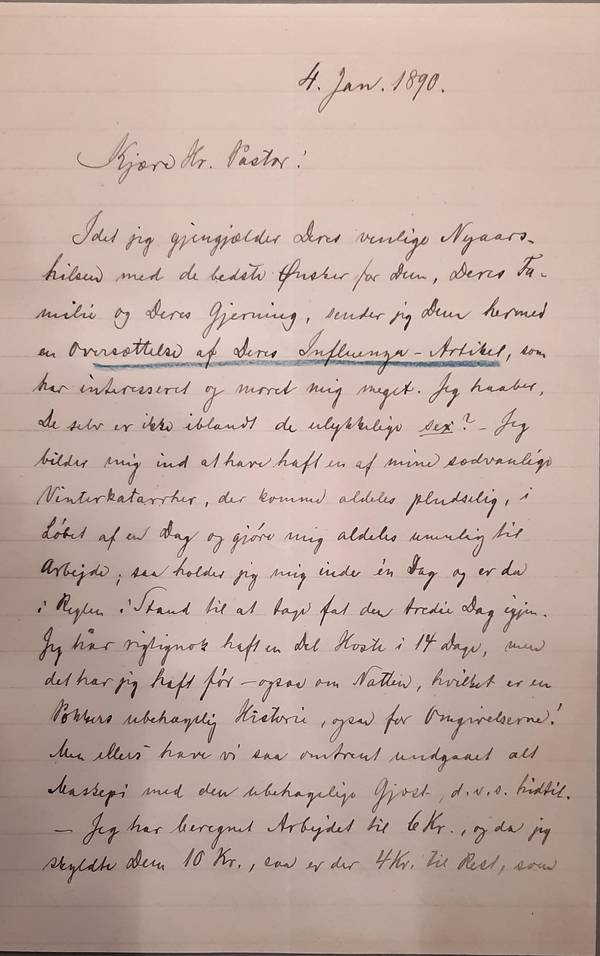 4. Jan. 1890.
Kjære Hr. Pastor!
Idet jeg gjengjælder Deres venlige Nyaars-
hilsen med de bedste Ønsker for Dem, Deres Fa-
milie og Deres Gjerning, sender jeg Dem hermed
en Oversættelse af Deres Influenza-Artikel, som
har interesseret og moret mig meget. Jeg haaber,
De selv er ikke iblandt de ulykkelige sex? – Jeg
bilder mig ind at have haft en af mine sædvanlige
Vinterkatarrher, der komme aldeles pludselig, i
Løbet af en Dag og gjøre mig aldeles umulig til
Arbejde; saa holder jeg mig inde én Dag og er da
i Reglen i Stand til at tage fat den tredie Dag igjen.
Jeg har rigtignok haft en Del Hoste i 14 Dage, men
det har jeg haft før – ogsaa om Natten, hvilket er en
Pokkers ubehagelig Historie, ogsaa for Omgivelserne!
Men ellers have vi saa omtrent undgaaet alt
Maskepi med den ubehagelige Gjæst, d.v.s. hidtil.
– Jeg har beregnet Arbejdet til 6 Kr., og da jeg
skyldte Dem 10 Kr., saa er der 4 Kr. til Rest, som